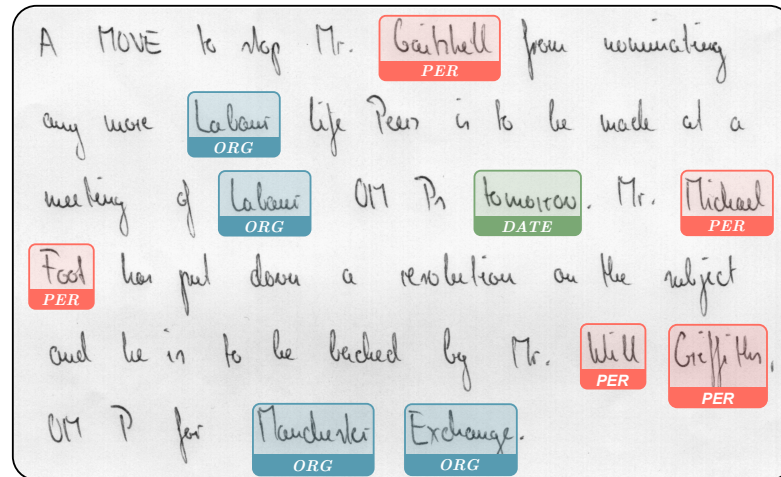 A MOVE to stop Mr. Gaitskell from nominating
PER
any more Labour life Peers is to be made at a
ORG
meeting of Labour OM Ps tomorrow. Mr. Michael
ORG DATE PER
Foot has put down a resolution on the subject
PER
and he is to be backed by Mr. Will Griffiths,
PER PER
OM P for Manchester Exchange.
ORG ORG